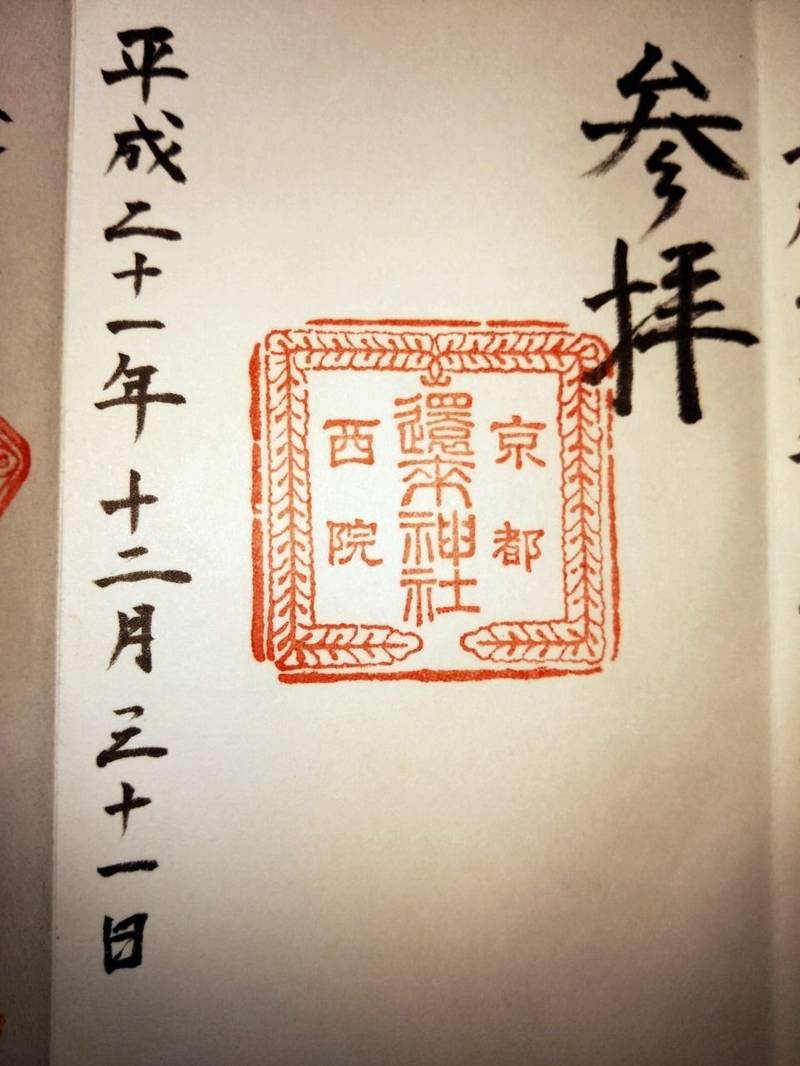 参拝
京都
還来神社
西院
平成二十一年十二月三十一日